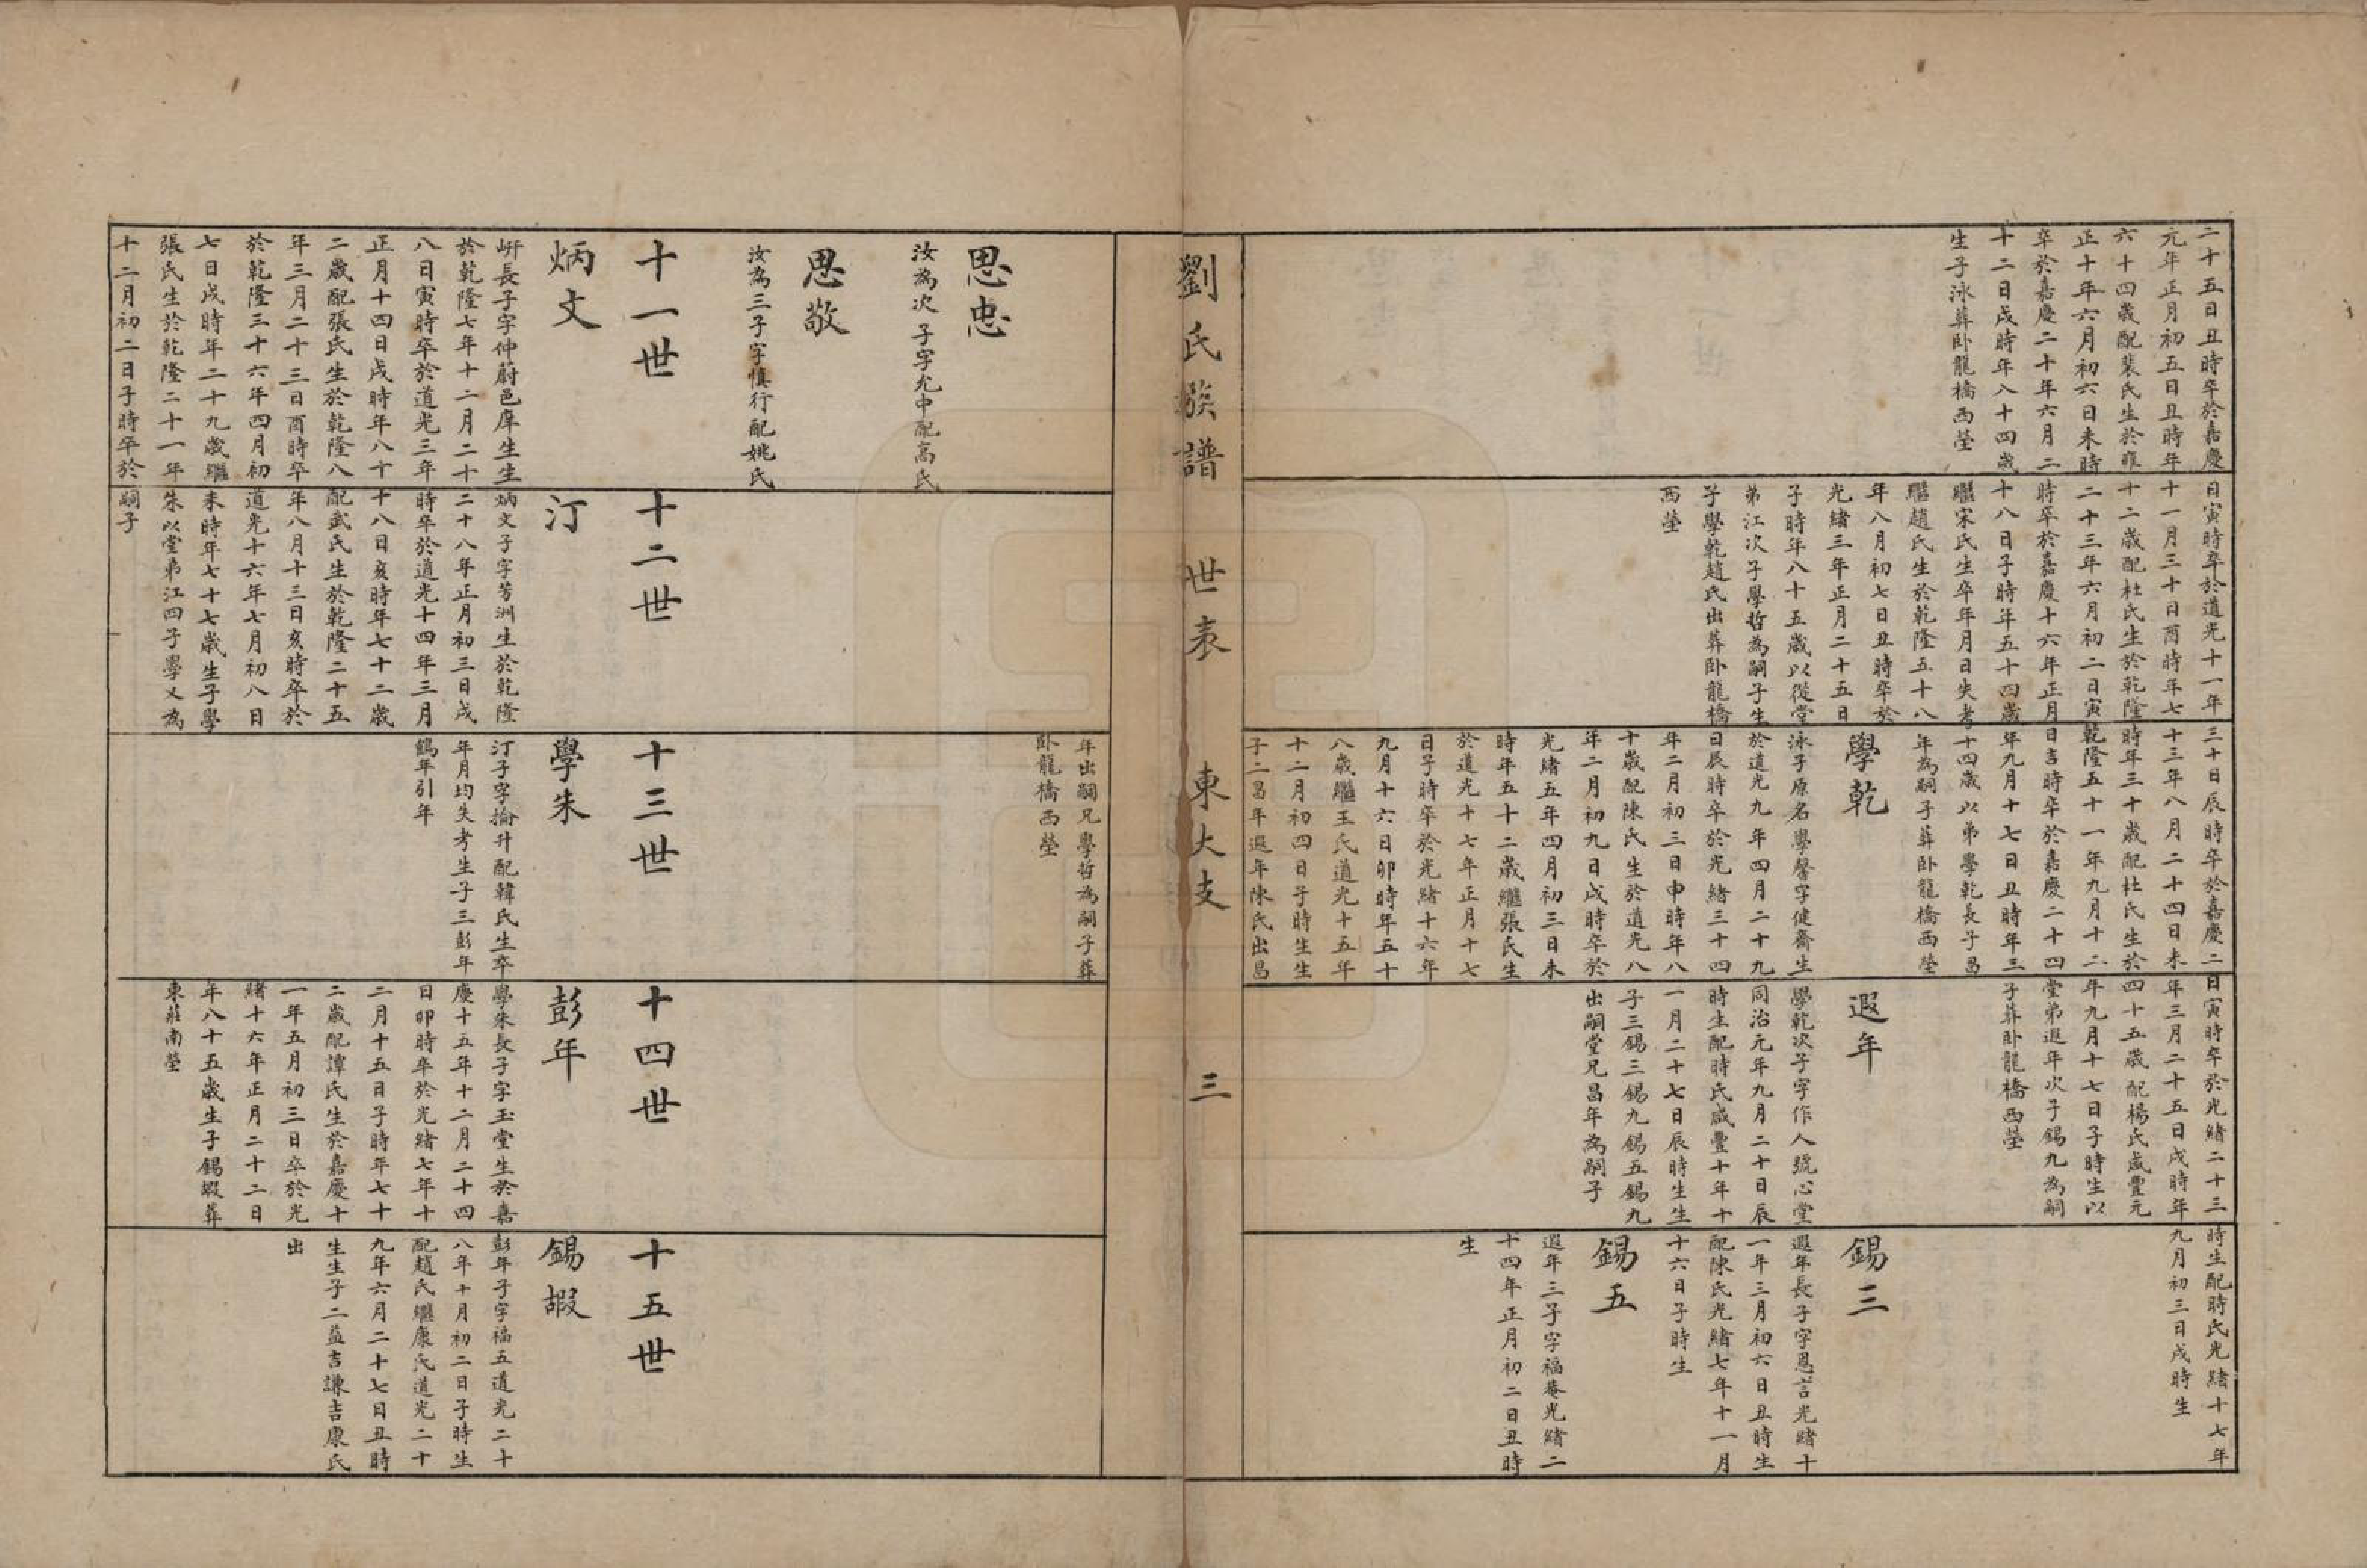 二十五日丑時卒於嘉慶
元年正月初五日丑時年
六十四歲配裴氏生於雍
正十年六月初六日未時
卒於嘉慶二十年六月二
十二日戌時年八十四歲
生子泳葬卧龍橋西塋
日寅時卒於道光十一年
十一月三十日酉時年七
十二歲配杜氏生於乾隆
二十三年六月初二日寅
時卒於嘉慶十六年正月
十八日子時年五十四歲
繼宋氏生卒年月日失考
繼趙氏生於乾隆五十八
年八月初七日丑時卒於
光緒三年正月二十五日
子時年八十五歲以從堂
弟江次子學哲為嗣子生
子學乾趙氏出葬卧龍橋
西塋
三十日辰時卒於嘉慶二
十三年八月二十四日未
時年三十歲配杜氏生於
乾隆五十一年九月十二
日吉時卒於嘉慶二十四
年九月十七日丑時年三
十四歲以弟學乾長子昌
年為嗣子葬卧龍橋西塋
學乾
泳子原名學謦字健齋生
於道光九年四月二十九
日辰時卒於光緒三十四
年二月初三日申時年八
十歲配陳氏生於道光八
年二月初九日戌時卒於
光緒五年四月初三日未
時年五十二歲繼張氏生
於道光十七年正月十七
日子時卒於光緒十六年
九月十六日卯時年五十
八歲繼王氏道光十五年
十二月初四日子時生生
子二昌年遐年陳氏出昌
年出嗣兄學哲為嗣子葬
卧龍橋西塋
日寅時卒於光緒二十三
年三月二十五日戌時年
四十五歲配楊氏咸豐元
年九月十七日子時生以
堂弟遐年次子錫九為嗣
子葬卧龍橋西塋
遐年
學乾次子字作人號心堂
同治元年九月二十日辰
時生配時氏咸豐十年十
一月二十七日辰時生生
子三錫三錫九錫五錫九
出嗣堂兄昌年為嗣子
時生配時氏光緒十七年
九月初三日戌時生
錫三
遐年長子字恩言光緒十
一年三月初六日丑時生
配陳氏光緒七年十一月
十六日子時生
錫五
遐年三子字福菴光緒二
十四年正月初二日丑時
生
劉氏族譜 世表 東大支 三
思忠
汝為次子字允中配高氏
思敬
汝為三子字慎行配姚氏
十一世
炳文
岍長子字仲蔚邑庠生生
於乾隆七年十二月二十
八日寅時卒於道光三年
正月十四日戌時年八十
二歲配張氏生於乾隆八
年三月二十三日酉時卒
於乾隆三十六年四月初
七日戌時年二十九歲繼
張氏生於乾隆二十一年
十二月初二日子時卒於
十二世
汀
炳文子字芳洲生於乾隆
二十八年正月初三日戌
時卒於道光十四年三月
十八日亥時年七十二歲
配武氏生於乾隆二十五
年八月十三日亥時卒於
道光十六年七月初八日
未時年七十七歲生子學
朱以堂弟江四子學义為
嗣子
十三世
學朱
汀子字掄升配韓氏生卒
年月均失考生子三彭年
鶴年引年
十四世
彭年
學朱長子字玉堂生於嘉
慶十五年十二月二十四
日卯時卒於光緒七年十
二月十五日子時年七十
二歲配譚氏生於嘉慶十
一年五月初三日卒於光
緒十六年正月二十二日
年八十五歲生子錫嘏葬
東莊南塋
十五世
錫嘏
彭年子字福五道光二十
八年十月初二日子時生
配趙氏繼康氏道光二十
九年六月二十七日丑時
生生子二益吉謙吉康氏
出